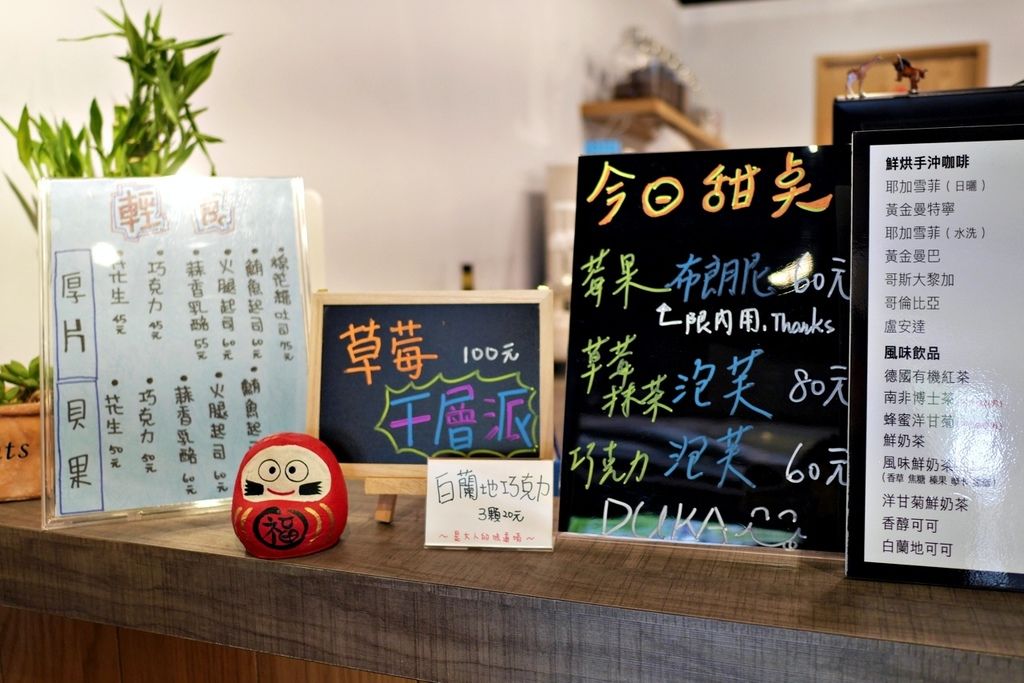 輕食
厚片
花生 45元
巧克力 45元
蒜香乳酪 55元
火腿起司 60元
鮪魚起司 60元
棉花糖吐司 75元
貝果
花生 50元
巧克力 50元
蒜香乳酪 60元
火腿起司 60元
鮪魚起
福
草莓 100元
千層派
白蘭地巧克力
3顆20元
今日甜点
莓果 布朗尼 60元
限內用.Thanks
草莓
抹茶 泡芙 80元
巧克力 泡芙 60元
DUKA
鮮烘手沖咖啡
耶加雪菲（日曬）
黃金曼特寧
耶加雪菲（水洗）
黃金曼巴
哥斯大黎加
哥倫比亞
盧安達
風味飲品
德國有機紅茶
南非博士茶
蜂蜜洋甘菊
鮮奶茶
風味鮮奶茶
(香草 焦糖 榛果
洋甘菊鮮奶茶
香醇可可
白蘭地可可
ts